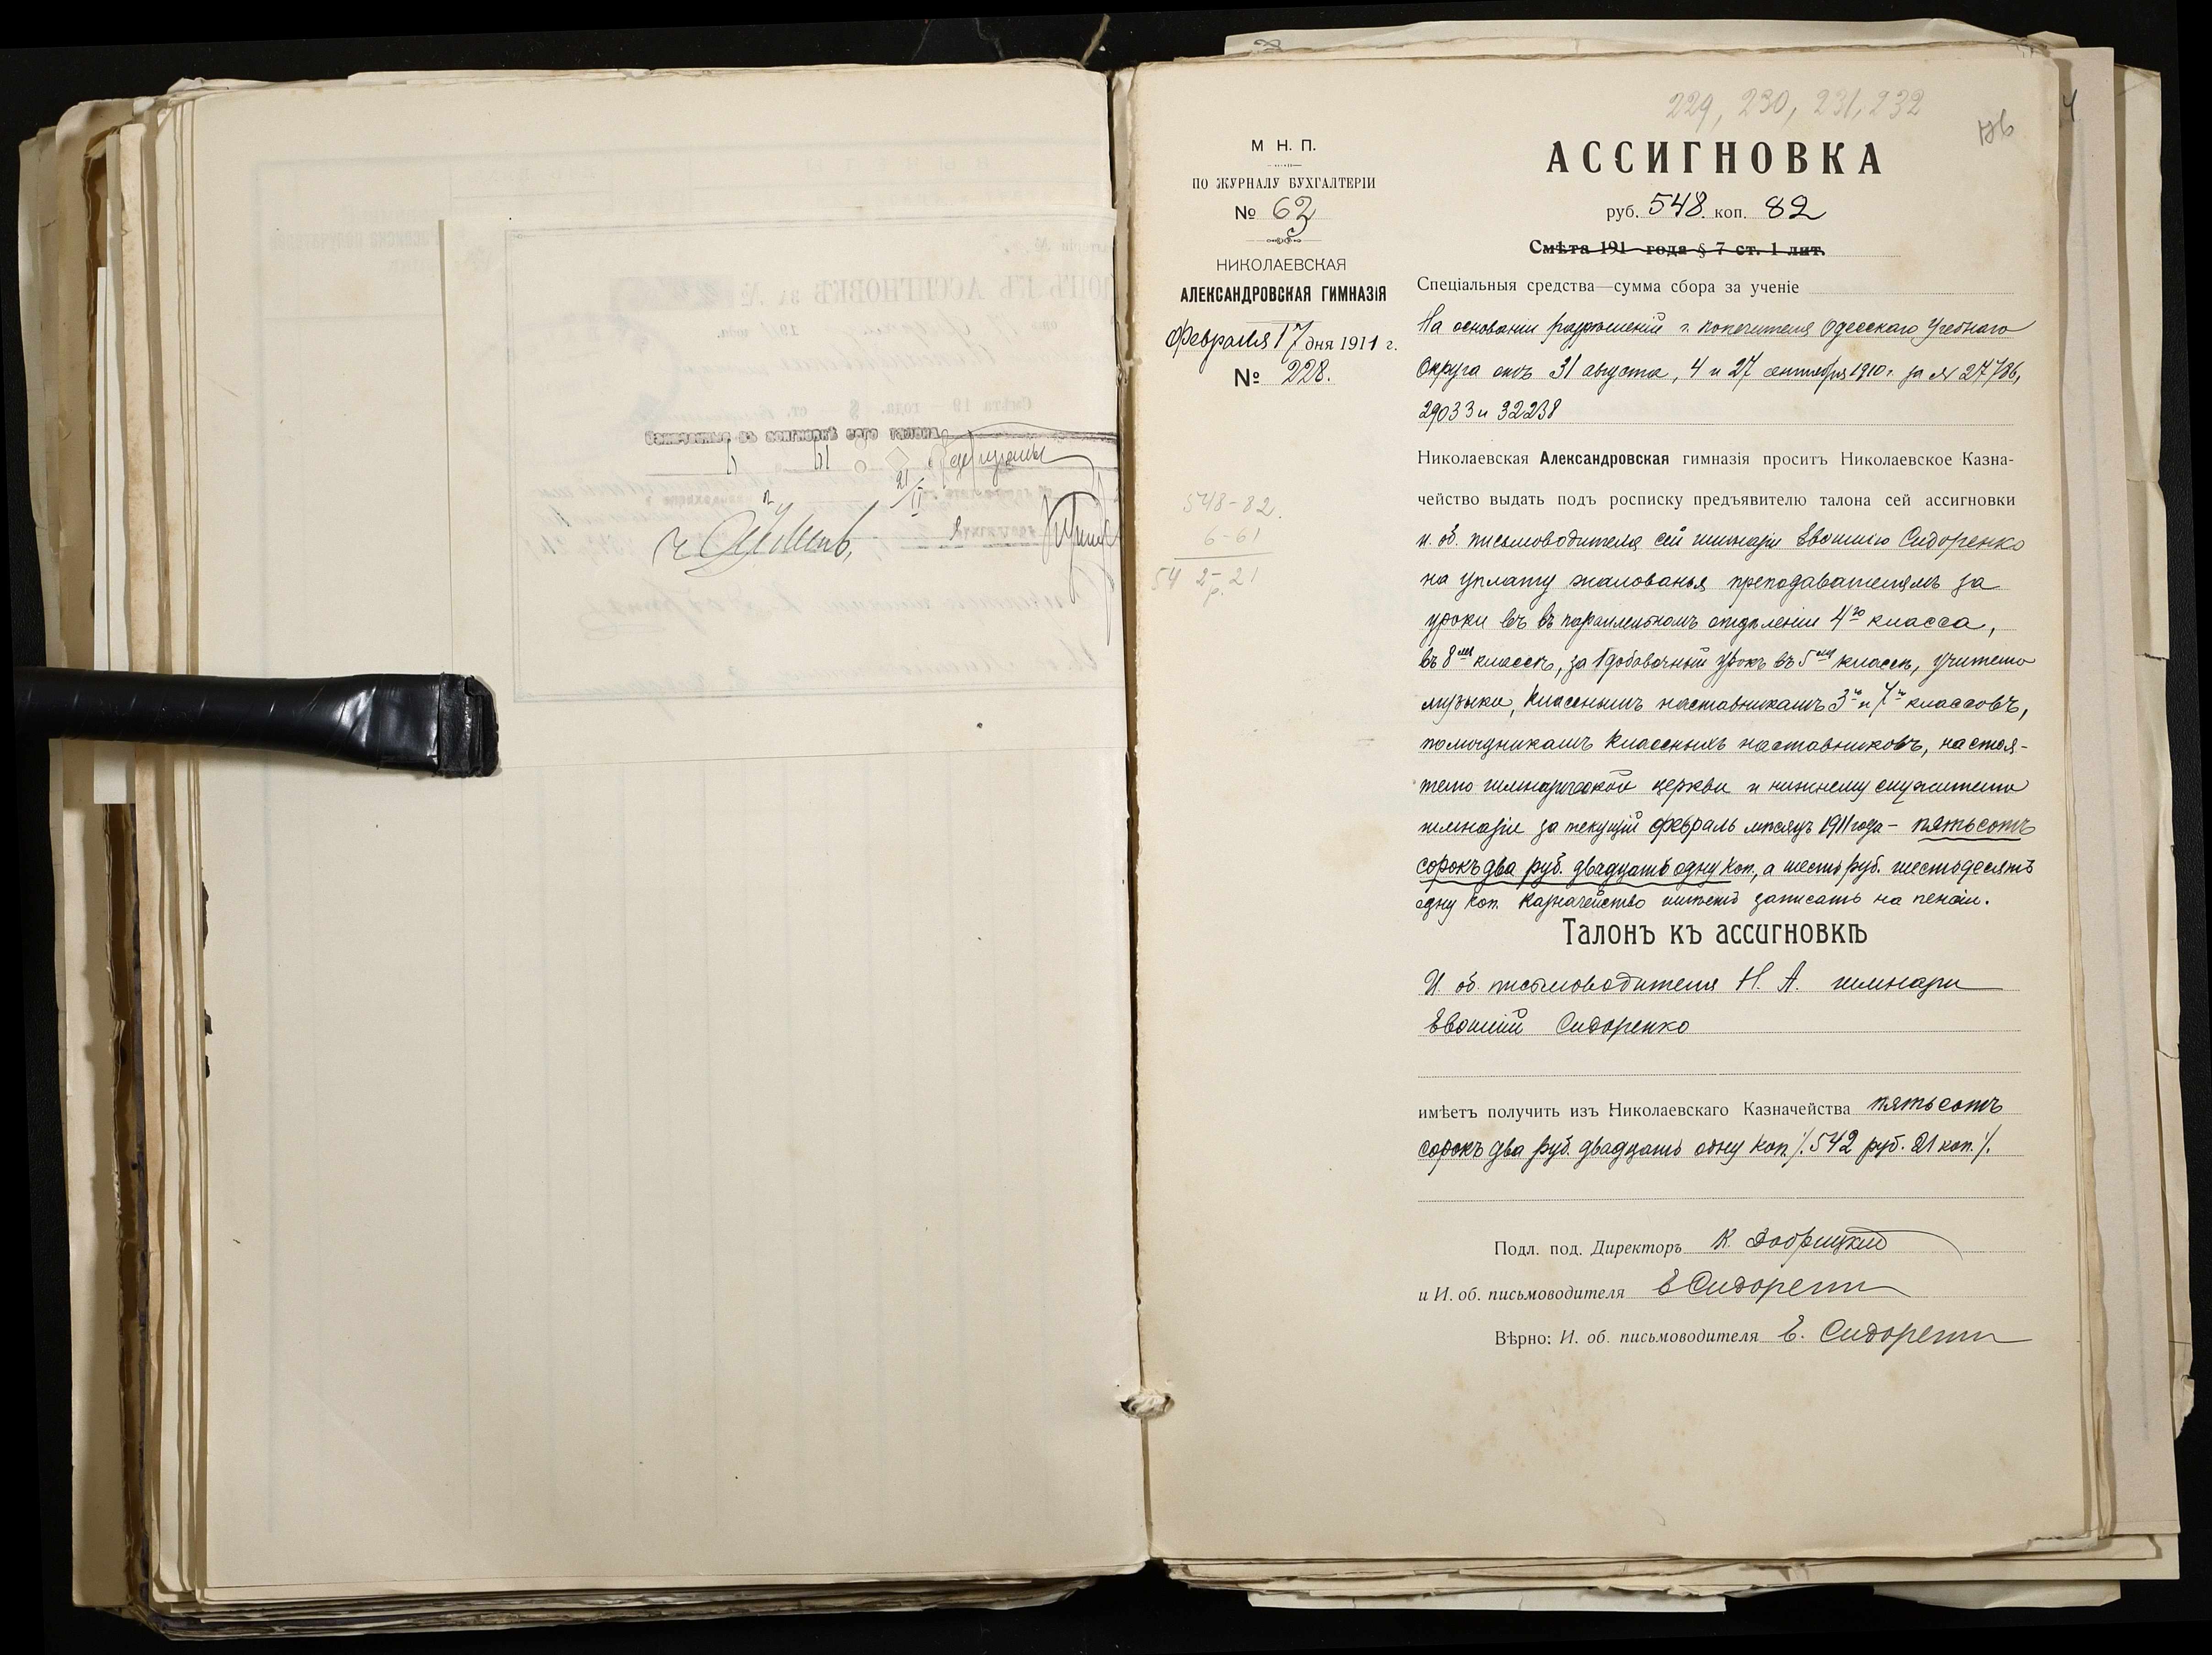 229, 230, 231, 232
М Н. П.
ПО ЖУРНАЛУ БУХГАЛТЕРІИ
№ 62
НИКОЛАЕВСКАЯ
АЛЕКСАНДРОВСКАЯ ГИМНАЗІЯ
Февраля 17 дня 1911 г.
№ 228.
548-82.
6-61
542-21
р.
АССИГНОВКА
руб. 548. коп. 82
Смѣта 191 года § 7 ст. 1 лит.
Спеціальныя средства—сумма сбора за ученіе
На основаніи разрѣшеній г. Попечителя Одесскаго Учебнаго
Округа отъ 31 августа, 4 и 27 сентября 1910 г. за № 27786,
29033 и 32238
Николаевская Александровская гимназія проситъ Николаевское Казна-
чейство выдать подъ росписку предъявителю талона сей ассигновки
и. об. письмоводителя сей гимназіи Евѳимію Сидоренко
на уплату жалованья преподавателямъ за
уроки въ въ параллельномъ отдѣленіи 4го класса,
въ 8мъ классѣ, за 1 добавочный урокъ въ 5мъ классѣ, учителю
музыки, класснымъ наставникамъ 3го и 7го классовъ,
помощникамъ классныхъ наставниковъ, настоя-
телю гимназической церкви и нижнему служителю
гимназіи за текущій февраль мѣсяцъ 1911 года - пятьсотъ
сорокъ два руб. двадцать одну коп., а шесть руб. шестьдесятъ
одну коп. Казначейство имѣетъ записать на пенсіи.
Талонъ къ ассигновкѣ
И. об. письмоводителя Н. А. гимназіи
Евѳимій Сидоренко
имѣетъ получить изъ Николаевскаго Казначейства пятьсотъ
сорокъ два руб. двадцать одну коп. /. 542 руб. 21 коп. /.
Подл. под. Директоръ К. Добрицкій
и И. об. письмоводителя Е Сидоренко
Вѣрно: И. об. письмоводителя Е. Сидоренко